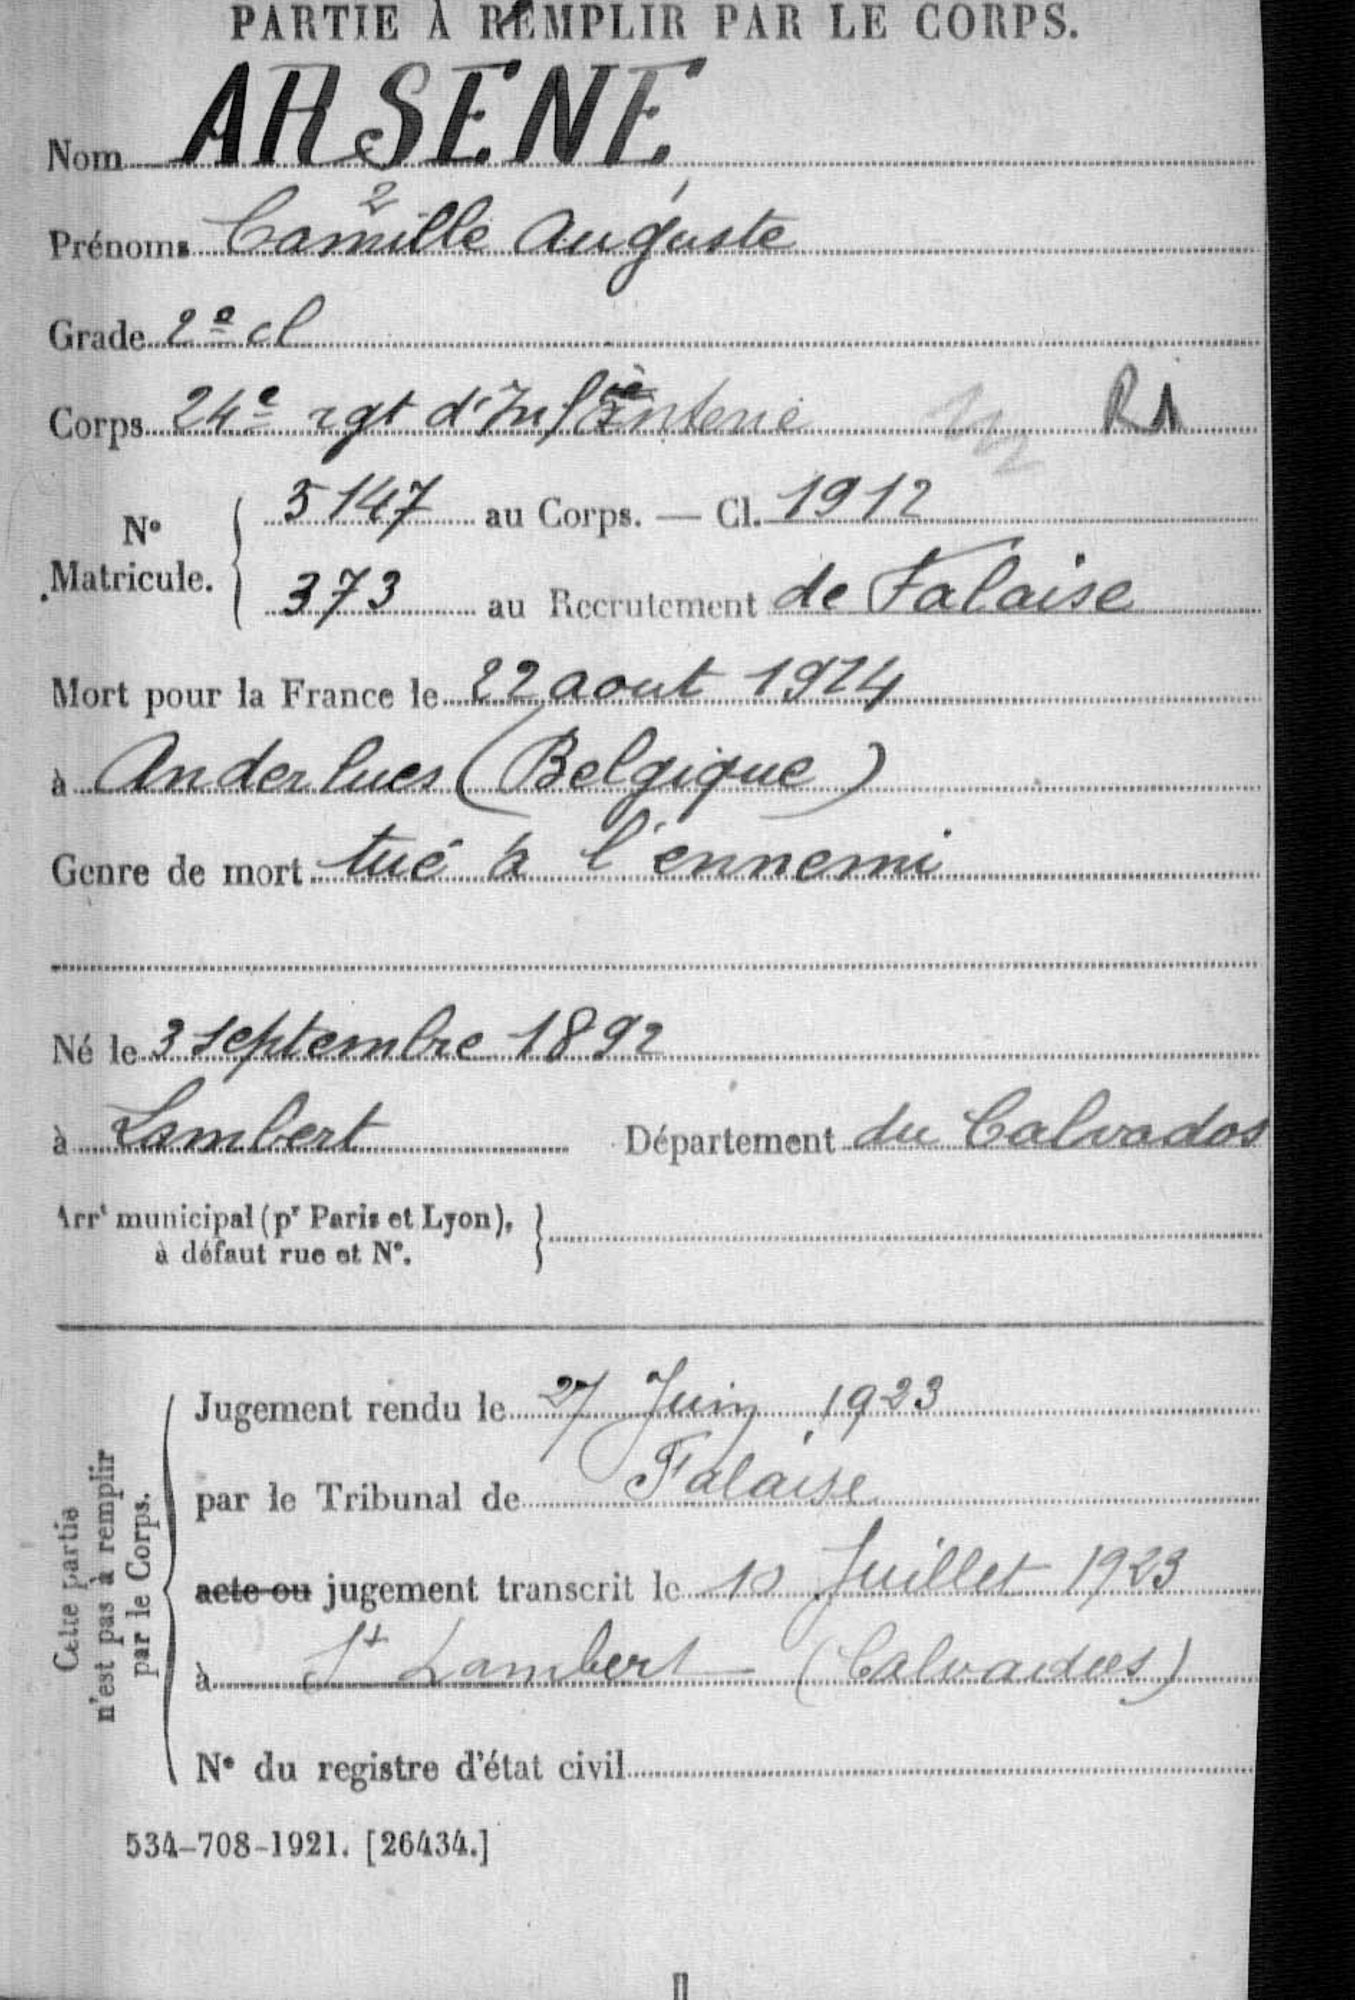 PARTIE À REMPLIR PAR LE CORPS.
Nom ARSENE
Prénoms Camille Auguste
2 1
Grade 2e cl
Corps 24e rgt d'Infanterie R1
N° Matricule. { 5147 au Corps. — Cl. 1912
373 au Recrutement de Falaise
Mort pour la France le 22 aout 1914
à Anderlues (Belgique)
Genre de mort tué à l'ennemi
Né le 3 septembre 1892
à Lambert Département du Calvados
Arrt municipal (pr Paris et Lyon), }
à défaut rue et N°.
Cette partie
n'est pas à remplir
par le Corps.
Jugement rendu le 27 Juin 1923
par le Tribunal de Falaise
acte ou jugement transcrit le 10 Juillet 1923
à St Lambert (Calvados)
N° du registre d'état civil
534-708-1921. [26434.]